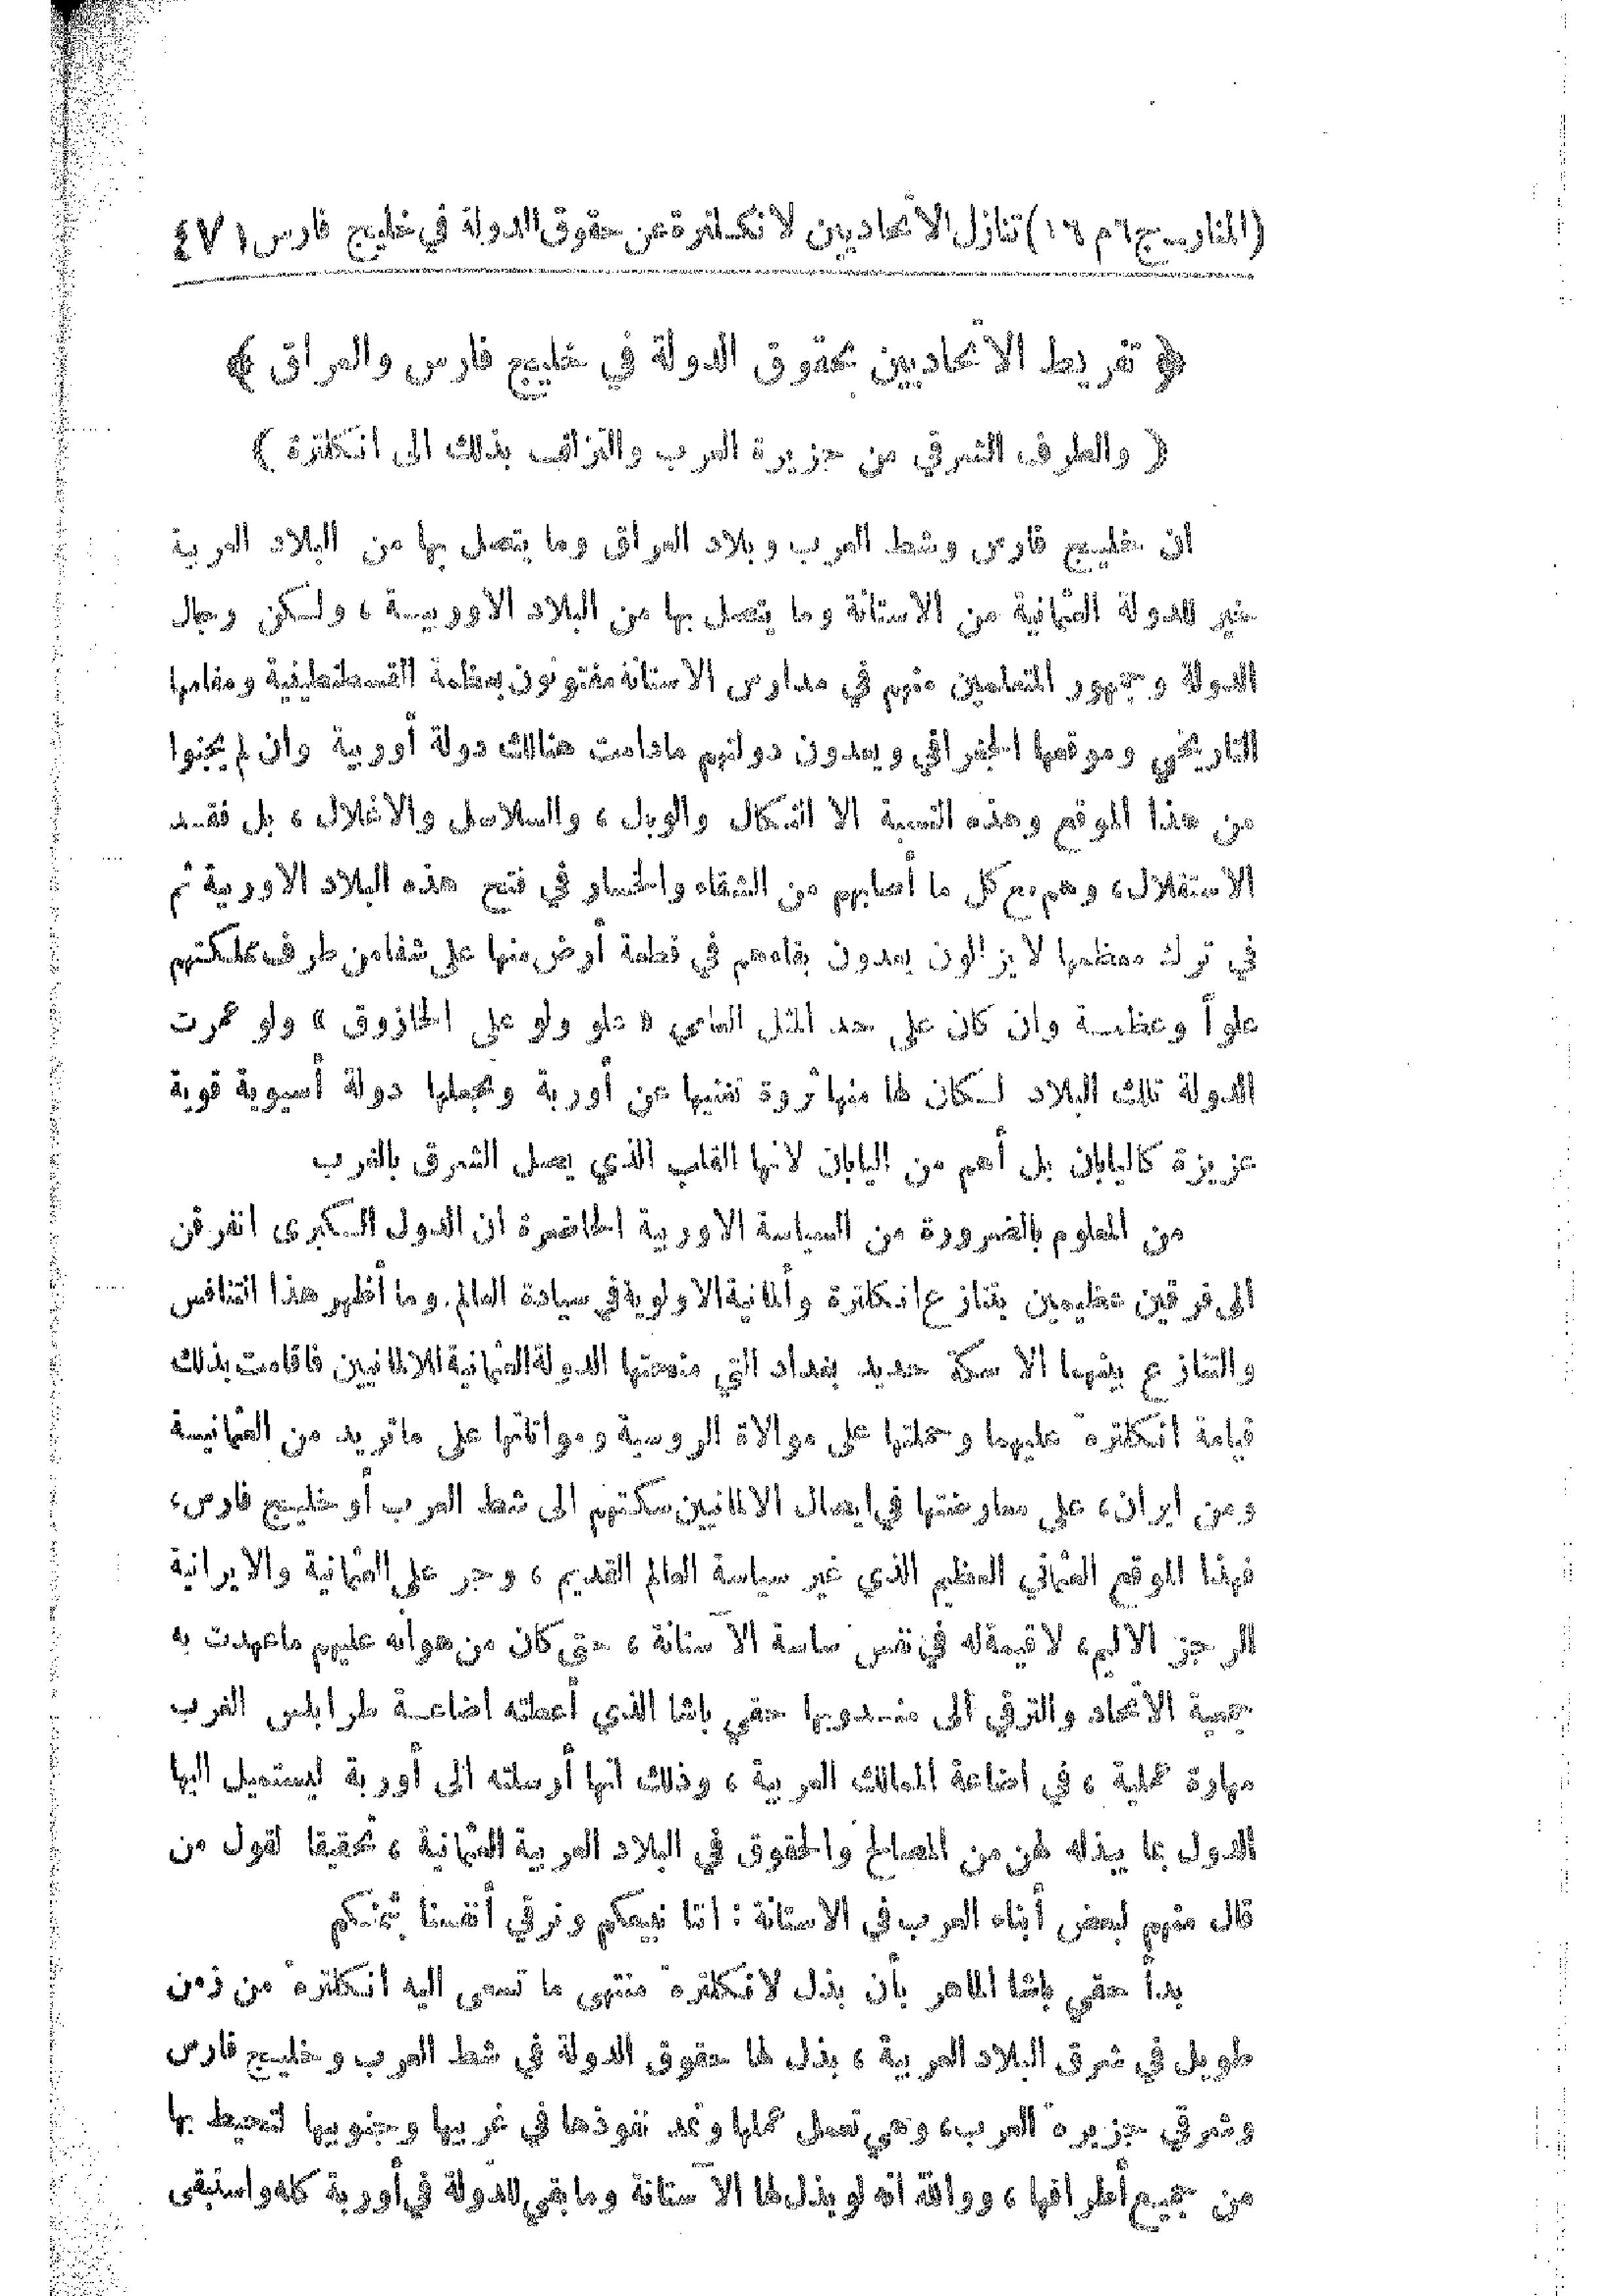 (المنار ــ ج ٦ م ١٦) تنازل الاتحاديين لانكلترة عن حقوق الدولة في خليج فارس ٤٧١
﴿ تفريط الاتحاديين بحقوق الدولة في خليج فارس والعراق ﴾
( والطرف الشرقي من جزيرة العرب والتزلف بذلك الى انكلترة )
ان خليج فارس وشط العرب وبلاد العراق وما يتصل بها من البلاد العربية
خير للدولة العثمانية من الاستانة وما يتصل بها من البلاد الاوربية ، ولكن رجال
الدولة وجمهور المتعلمين منهم في مدارس الاستانة مفتونون بعظمة القسطنطينية ومقامها
التاريخي وموقعها الجغرافي ويعدون دولتهم مادامت هنالك دولة أوربية وان لم يجنوا
من هذا الموقع وهذه النسبة الا النكال والوبل ، والسلاسل والاغلال ، بل فقد
الاستقلال ، وهم مع كل ما أصابهم من الشقاء والخسار في فتح هذه البلاد الاوربية ثم
في ترك معظمها لا يزالون يعدون بقاءهم في قطعة أرض منها على شفا من طرف مملكتهم
علواً وعظمة وان كان على حد المثل العامي « علو ولو على الخازوق » ولو عمرت
الدولة تلك البلاد لكان لها منها ثروة تغنيها عن أوربة وتجعلها دولة أسيوية قوية
عزيزة كاليابان بل أهم من اليابان لانها القلب الذي يصل الشرق بالغرب
من المعلوم بالضرورة من السياسة الاوربية الحاضرة ان الدول الكبرى انفرقن
الى فرقين عظيمين بتنازع انكلترة وألمانية الاولوية في سيادة العالم . وما أظهر هذا التنافس
والتنازع بينهما الا سكة حديد بغداد التي منحتها الدولة العثمانية للالمانيين فاقامت بذلك
قيامة انكلترة عليهما وحملتها على موالاة الروسية ومواتاتها على ما تريد من العثمانية
ومن ايران ، على معارضتها في ايصال الالمانيين سكتهم الى شط العرب أو خليج فارس ،
فهذا الموقع العثماني العظيم الذي غير سياسة العالم القديم ، وجر على العثمانية والايرانية
الرجز الاليم ، لا قيمة له في نفس ساسة الآستانة ، حتى كان من هوانه عليهم ما عهدت به
جمعية الاتحاد والترقي الى مندوبها حقي باشا الذي أعطته اضاعة طرابلس الغرب
مهارة عملية ، في اضاعة الممالك العربية ، وذلك انها أرسلته الى أوربة ليستميل اليها
الدول بما يبذله لهن من المصالح والحقوق في البلاد العربية العثمانية ، تحقيقا لقول من
قال منهم لبعض أبناء العرب في الاستانة : اننا نبيعكم ونرقي أنفسنا بثمنكم
بدأ حقي باشا الماهر بأن بذل لانكلترة منتهى ما تسعى اليه انكلترة من زمن
طويل في شرق البلاد العربية ، بذل لها حقوق الدولة في شط العرب وخليج فارس
وشرقي جزيرة العرب ، وهي تعمل عملها وتمد نفوذها في غربيها وجنوبيها لتحيط بها
من جميع أطرافها ، ووالله انه لو بذل لها الآستانة وما بقي للدولة في أوربة كله واستبقى